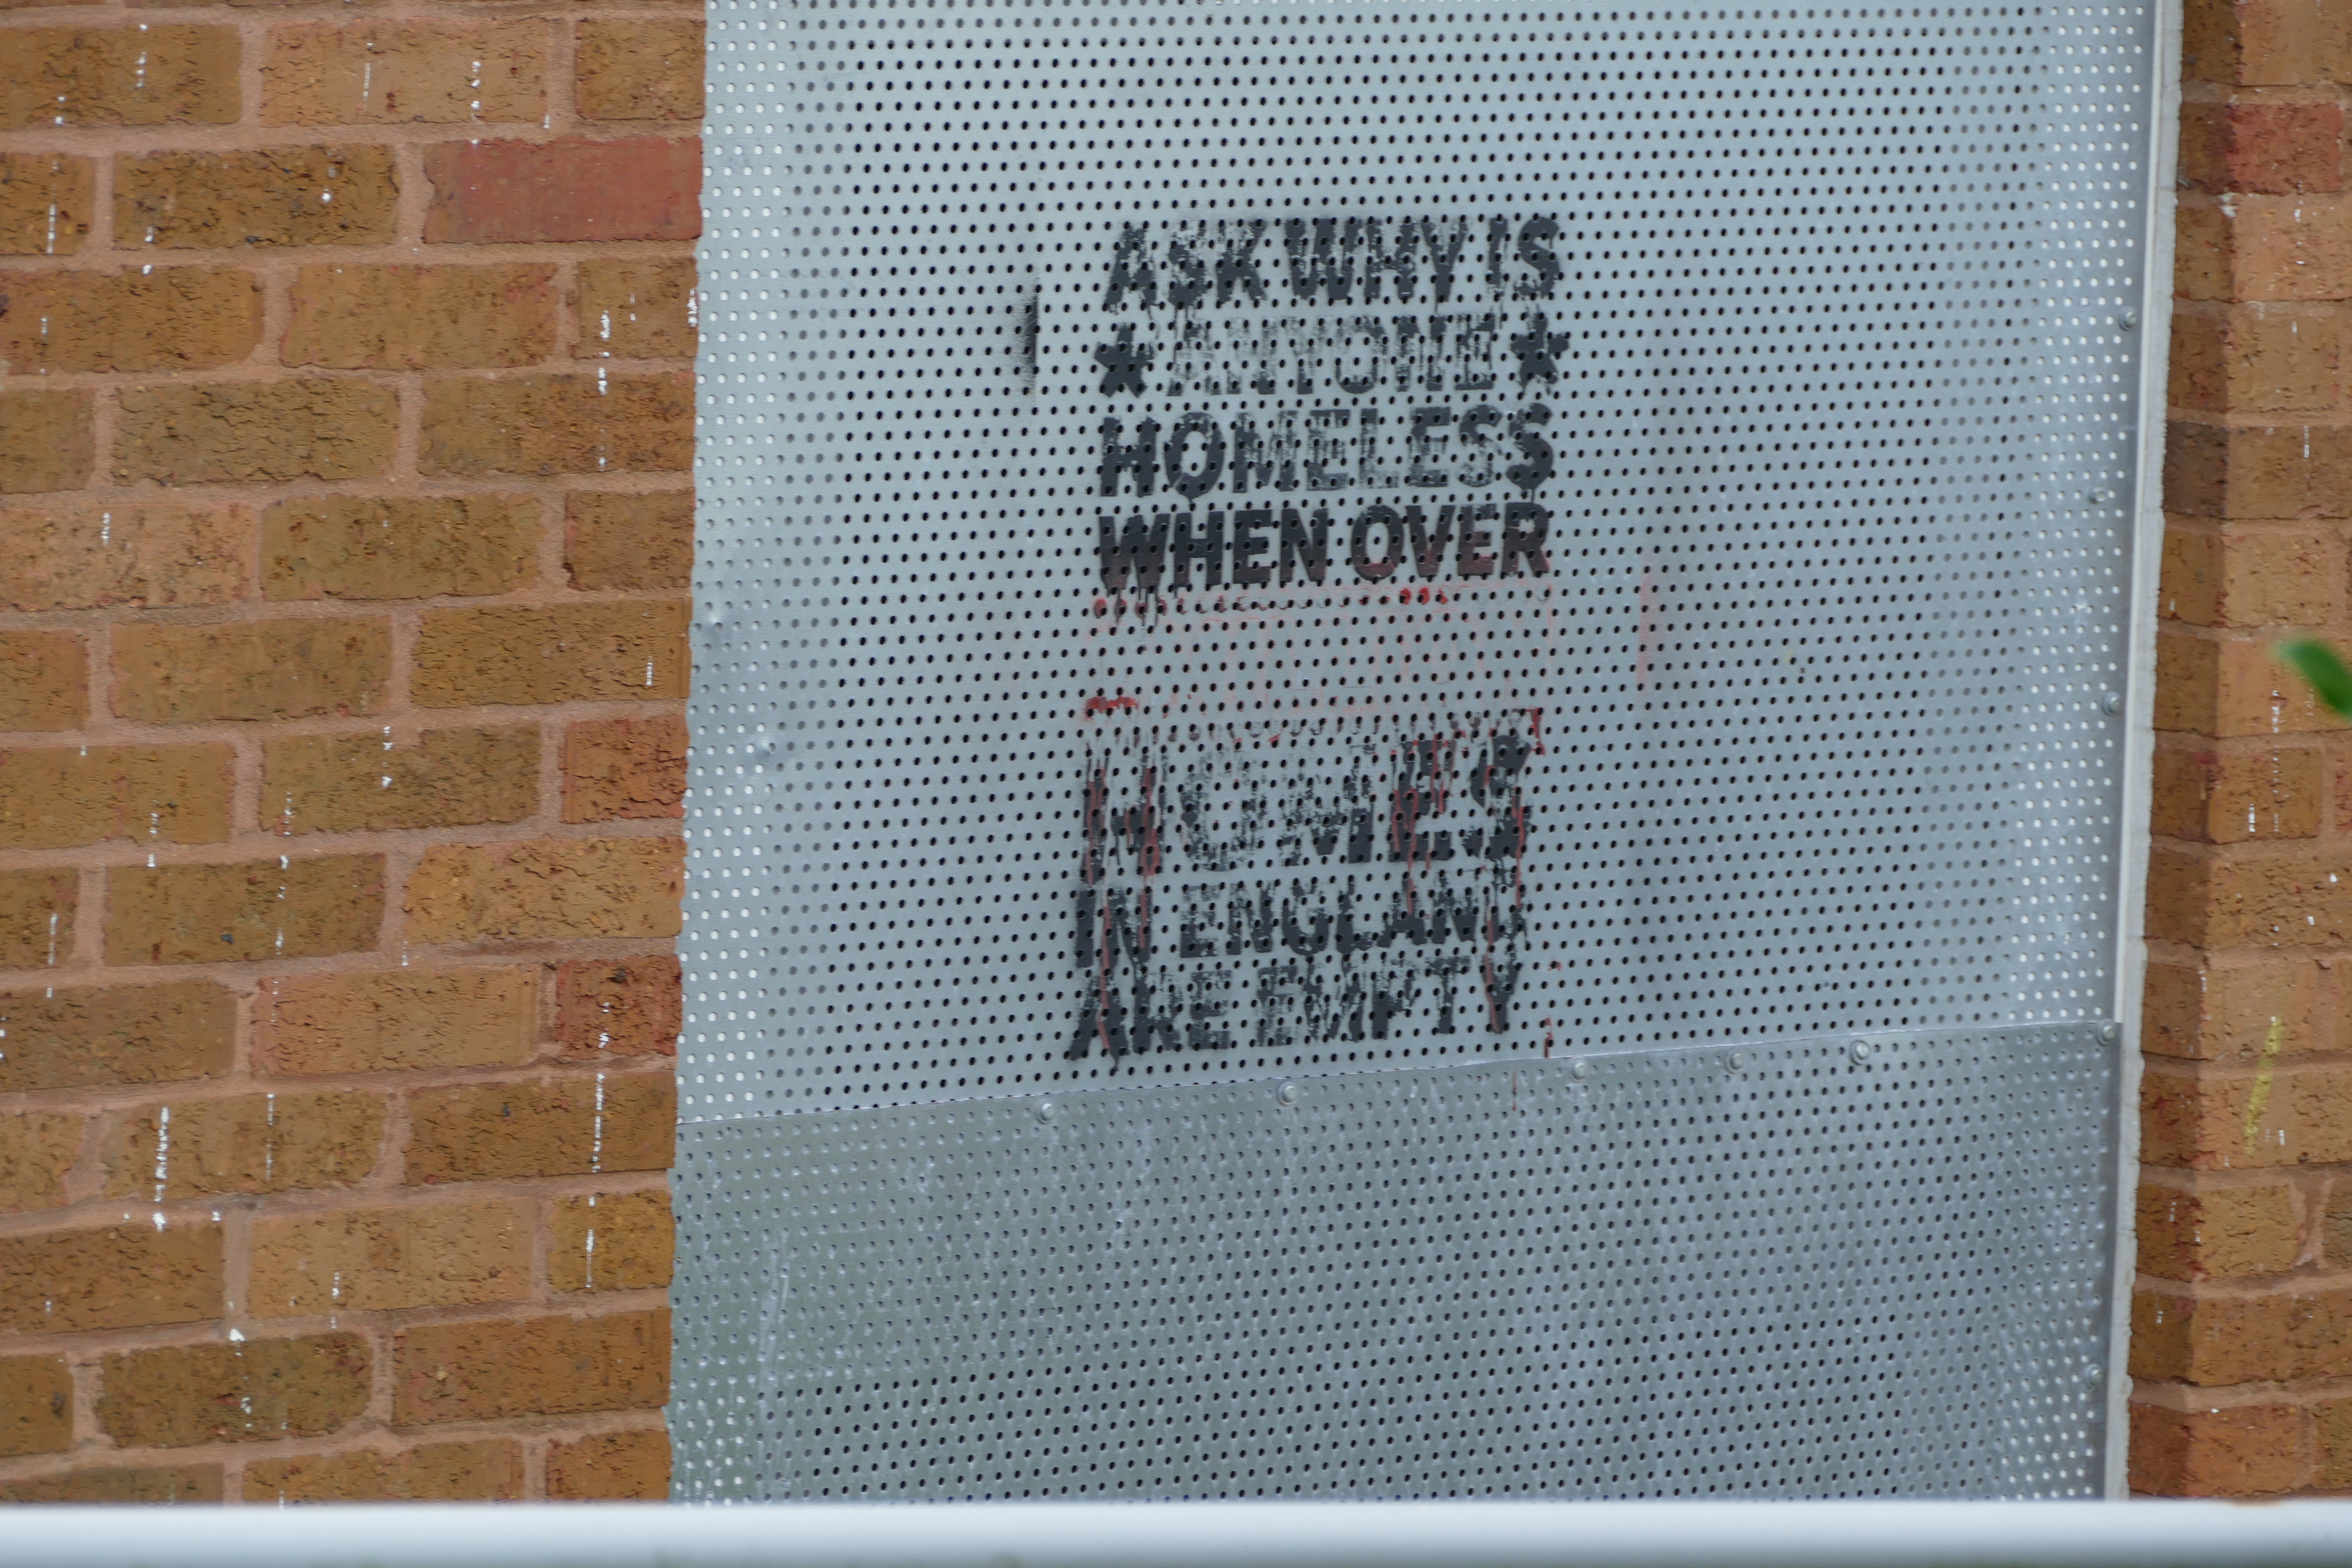 ASK WHY IS
* ANYONE *
HOMELESS
WHEN OVER
HOMES
IN ENGLAND
ARE EMPTY